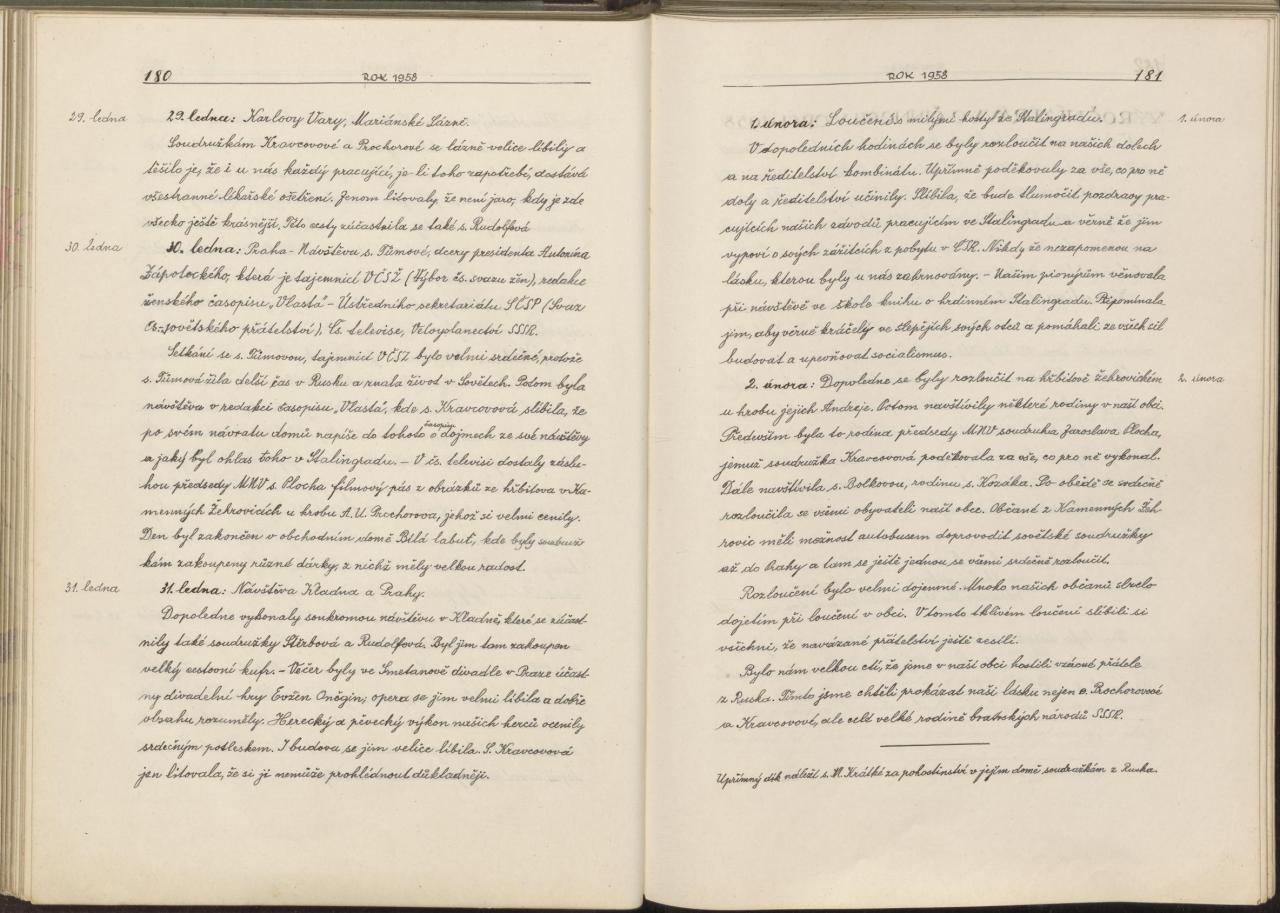 180
ROK 1958
29. ledna
29. ledna: Karlovy Vary, Mariánské Lázně.
Soudružkám Kravcovové a Prochorové se lázně velice líbily a
těšilo je, že i u nás každý pracující, je-li toho zapotřebí, dostává
všestranné lékařské ošetření. Jenom litovaly, že není jaro, kdy je zde
všecko ještě krásnější. Této cesty zúčastnila se také s. Rudolfová
30. ledna
30. ledna: Praha - Návštěva s. Tůmové, dcery presidenta Antonína
Zápotockého, která je tajemnicí VČSŽ (Výbor čs. svazu žen), redakce
ženského časopisu „Vlasta" - Ústředního sekretariátu SČSP (Svaz
čs.-sovětského přátelství), Čs. televise, Velvyslanectví SSSR.
Setkání se s. Tůmovou, tajemnicí VČSŽ bylo velmi srdečné, protože
s. Tůmová žila delší čas v Rusku a znala život v Sovětech. Potom byla
návštěva v redakci časopisu „Vlasta", kde s. Kravcovová slíbila, že
po svém návratu domů napíše do tohoto časopisu o dojmech ze své návštěvy
a jaký byl ohlas toho v Stalingradu. - V čs. televisi dostaly záslu-
hou předsedy MNV s. Plocha filmový pás z obrázků ze hřbitova v Ka-
menných Žehrovicích u hrobu A. U. Prochorova, jehož si velmi cenily.
Den byl zakončen v obchodním domě Bílá labuť, kde byly soudruž-
kám zakoupeny různé dárky, z nichž měly velkou radost.
31. ledna
31. ledna: Návštěva Kladna a Prahy.
Dopoledne vykonaly soukromou návštěvu v Kladně, které se zúčast-
nily také soudružky Štěrbová a Rudolfová. Byl jim tam zakoupen
velký cestovní kufr. - Večer byly ve Smetanově divadle v Praze účast-
ny divadelní hry Evžen Oněgin, opera se jim velmi líbila a dobře
obsahu rozuměly. Herecký a pěvecký výkon našich herců ocenily
srdečným potleskem. I budova se jim velice líbila. S. Kravcovová
jen litovala, že si ji nemůže prohlédnout důkladněji.
ROK 1958
181
1. února: Loučení s milými hosty ze Stalingradu.
1. února
V dopoledních hodinách se byly rozloučit na našich dolech
a na ředitelství kombinátu. Upřímně poděkovaly za vše, co pro ně
doly a ředitelství učinily. Slíbila, že bude tlumočit pozdravy pra-
cujících našich závodů pracujícím ve Stalingradu a věrně že jim
vypoví o svých zážitcích z pobytu v ČSR. Nikdy že nezapomenou na
lásku, kterou byly u nás zahrnovány. - Našim pionýrům věnovala
při návštěvě ve škole knihu o hrdinném Stalingradu. Připomínala
jim, aby věrně kráčely ve šlepějích svých otců a pomáhali ze všech sil
budovat a upevňovat socialismus.
2. února: Dopoledne se byly rozloučit na hřbitově žehrovickém
2. února
u hrobu jejich Andreje. Potom navštívily některé rodiny v naší obci.
Především byla to rodina předsedy MNV soudruha Jaroslava Plocha,
jemuž soudružka Kravcovová poděkovala za vše, co pro ně vykonal.
Dále navštívila s. Bolkovou, rodinu s. Kozáka. Po obědě se srdečně
rozloučila se všemi obyvateli naší obce. Občané z Kamenných Žeh-
rovic měli možnost autobusem doprovodit sovětské soudružky
až do Prahy a tam se ještě jednou se vámi srdečně rozloučit.
Rozloučení bylo velmi dojemné. Mnoho našich občanů slzelo
dojetím při loučení v obci. V tomto tklivém loučení slíbili si
všichni, že navázané přátelství ještě zesílí.
Bylo nám velkou ctí, že jsme v naší obci hostili vzácné přátele
z Ruska. Tímto jsme chtěli prokázat naši lásku nejen s. Prochorovové
a Kravcovové, ale celé velké rodině bratrských národů SSSR.
Upřímný dík náleží s. M. Krátké za pohostinství v jejím domě soudružkám z Ruska.